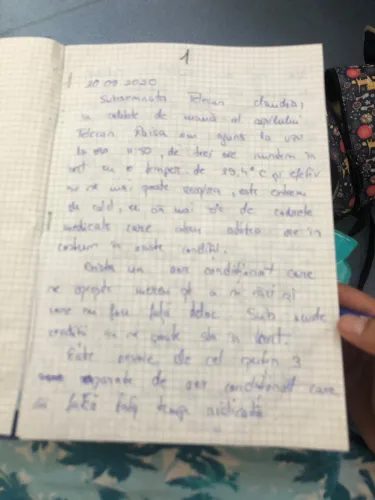 1
20.09.2020
Subsemnata Telecan Claudia,
în calitate de mamă al copilului
Telecan Raisa am ajuns la UPU
la ora 11:50, de trei ore suntem în
cort cu o temper. de 39,4°C și efectiv
nu se mai poate respira, este extrem
de cald, ce să mai zic de cadrele
medicale care stau atâtea ore în
costum în aceste condiții.
Există un aer condiționat care
se oprește mereu și
care nu face față deloc. Sub aceste
condiții nu se poate sta în cort.
Este nevoie de cel puțin 3
aparate de aer condiționat care
să facă față temp. ridicată